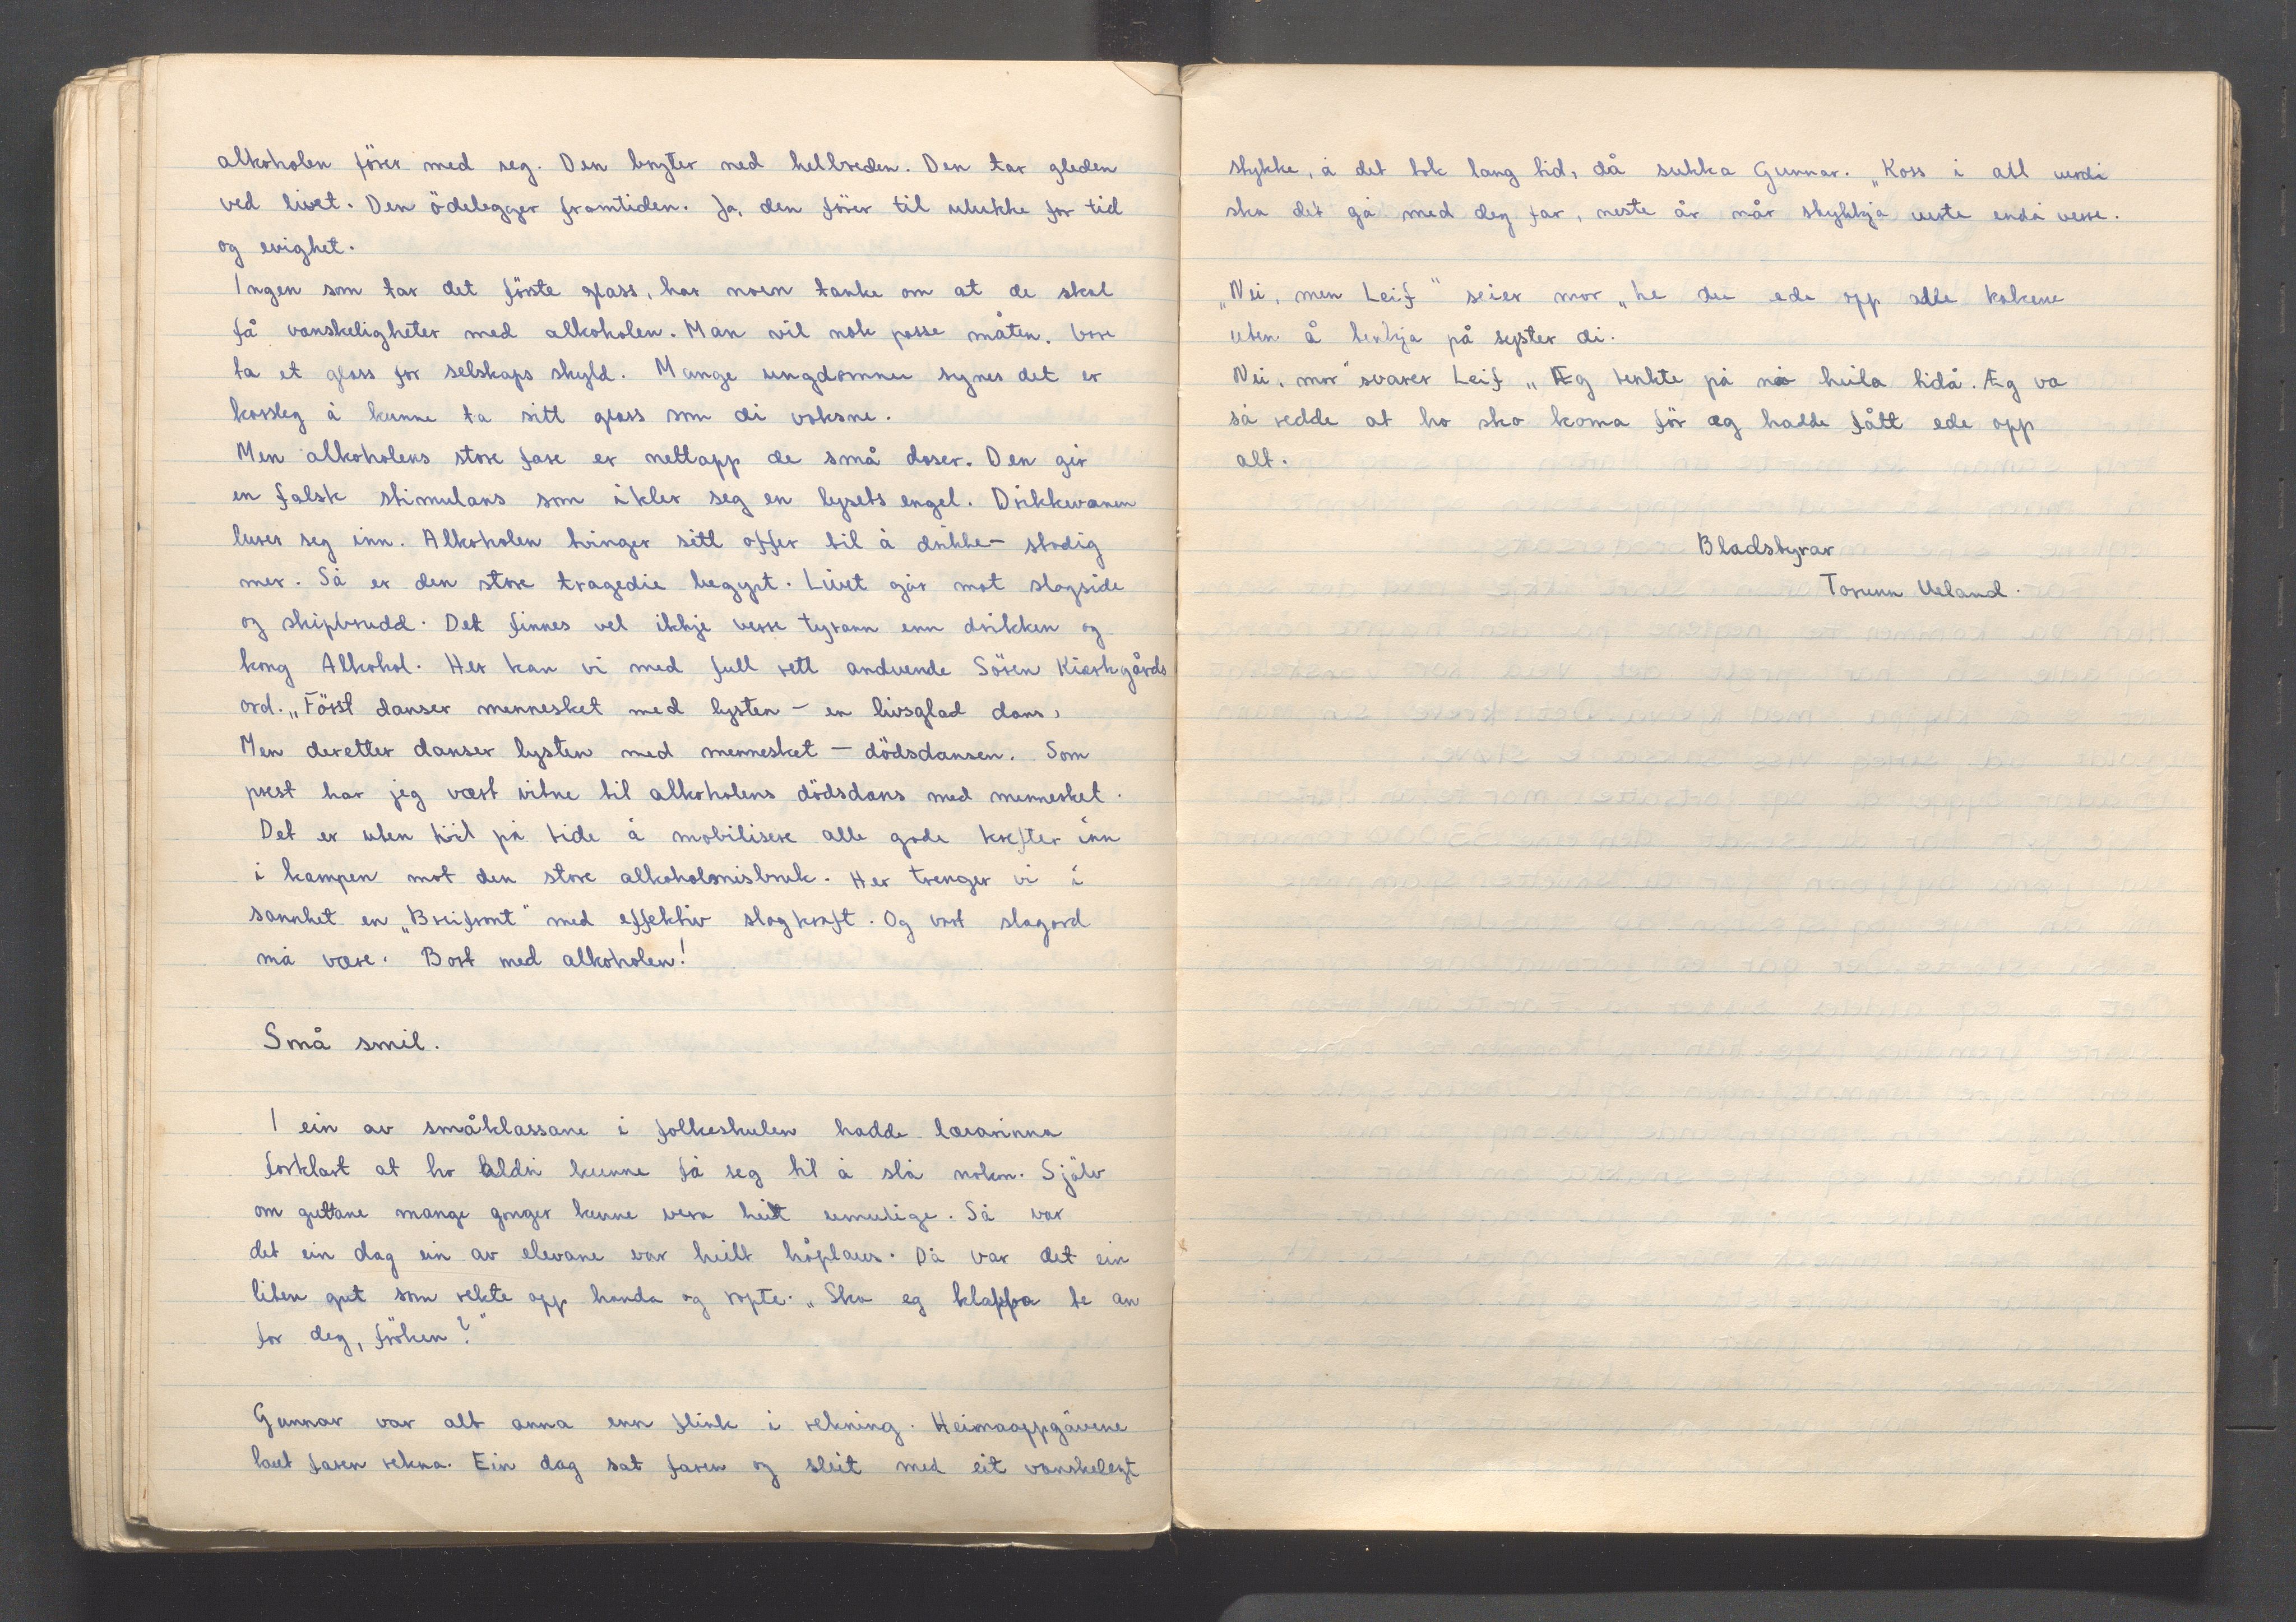 alkoholen förer med seg. Den bryter ned helbreden. Den tar gleden
ved livet. Den ödelegger framtiden. Ja, den förer til ulukke for tid
og evighet.
Ingen som tar det förste glass, har noen tanke om at de skal
få vanskeligheter med alkoholen. Man vil nok passe måten, bare
ta et glass for selskaps skyld. Mange ungdommer synes det er
karsleg å kunne ta sitt glass som di voksne.
Men alkoholens store fare er nettapp de små doser. Den gir
en falsk stimulans som ikler seg en lysets engel. Drikkevanen
lurer seg inn. Alkoholen tvinger sitt offer til å drikke – stadig
mer. Så er den store tragedie begynt. Livet går mot slagside
og skipbrudd. Det finnes vel ikkje verre tyrann enn drikken og
kong Alkohol. Her kan vi med full rett andvende Sören Kierkgårds
ord. „Först danser mennesket med lysten – en livsglad dans,
Men deretter danser lysten med mennesket – dödsdansen. Som
prest har jeg vært vitne til alkoholens dödsdans med mennesket.
Det er uten tvil på tide å mobilisere alle gode krefter inn
i kampen mot den store alkoholmisbruk. Her trenger vi i
sannhet en „Breifront" med effektiv slagkraft. Og vart slagord
må være. Bort med alkoholen!
Små smil.
I ein av småklassane i folkeskulen hadde lærarinna
forklart at ho aldri kunne få seg til å slå nokon. Själv
om guttane mange gonger kunne vera heilt umulige. Så var
det ein dag ein av elevane var heilt håplaus. Då var det ein
liten gut som rekte opp handa og ropte. „Ska eg klappa te an
for deg, fröken?"
Gunnar var alt anna enn flink i rekning. Heimaoppgåvene
laut faren rekna. Ein dag sat faren og sleit med eit vanskelegt
stykke, å det tok lang tid, då sukka Gunnar. „Koss i all verdi
ska det gå med deg far, neste år når stykkja verte endå verre.
„Nei, men Leif" seier mor „he du ede opp alle kakene
uten å tenkja på syster di.
Nei, mor" svarer Leif „Æg tenkte på nå heila tidå. Æg va
så redde at ho ska koma för æg hadde fått ede opp
alt.
Bladstyrar
Torunn Ueland.